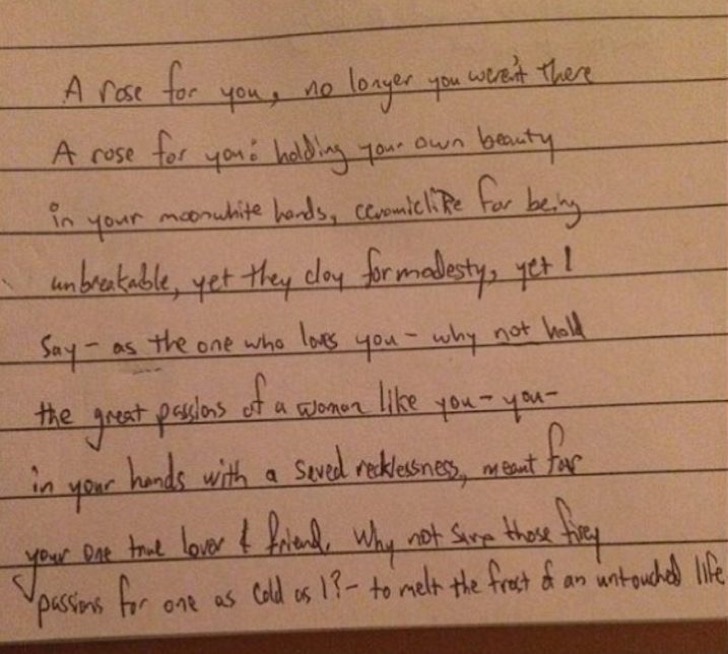 A rose for you, no longer you weren't there
A rose for you: holding your own beauty
in your moonwhite hands, ceramiclike for being
unbreakable, yet they cloy for modesty, yet I
Say - as the one who loves you - why not hold
the great passions of a woman like you - you -
in your hands with a saved recklessness, meant for
your one true lover & friend. Why not those firey
passions for one as cold as I? - to melt the frost of an untouched life